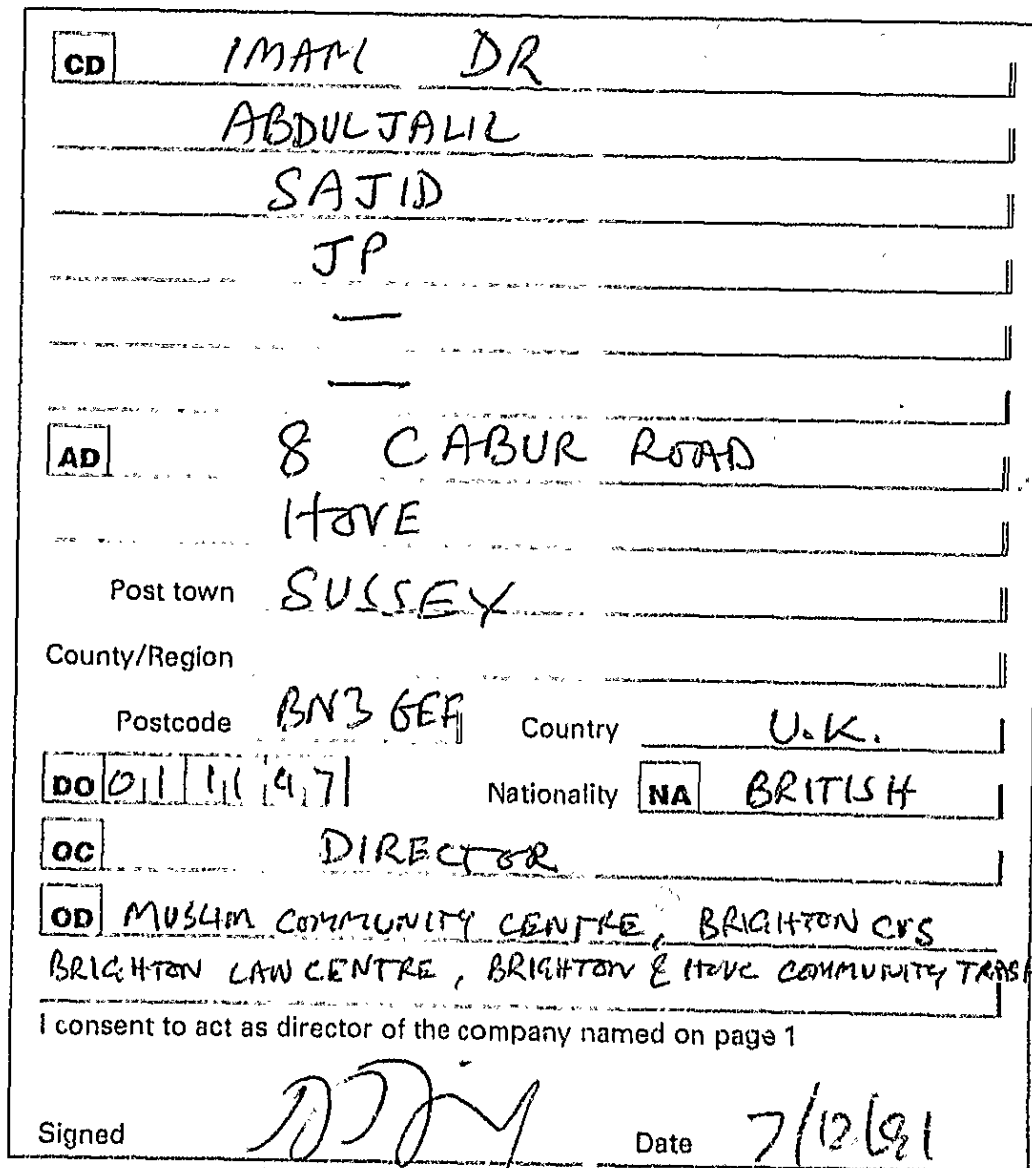 CD IMAM DR
ABDULJALIL
SAJID
JP
—
—
AD 8 CABUR ROAD
HOVE
Post town SUSSEX
County/Region
Postcode BN3 6EF Country U.K.
DO 01 11 47 Nationality NA BRITISH
OC DIRECTOR
OD MUSLIM COMMUNITY CENTRE, BRIGHTON CVS
BRIGHTON LAW CENTRE, BRIGHTON & HOVE COMMUNITY
I consent to act as director of the company named on page 1
Signed Date 7/12/91